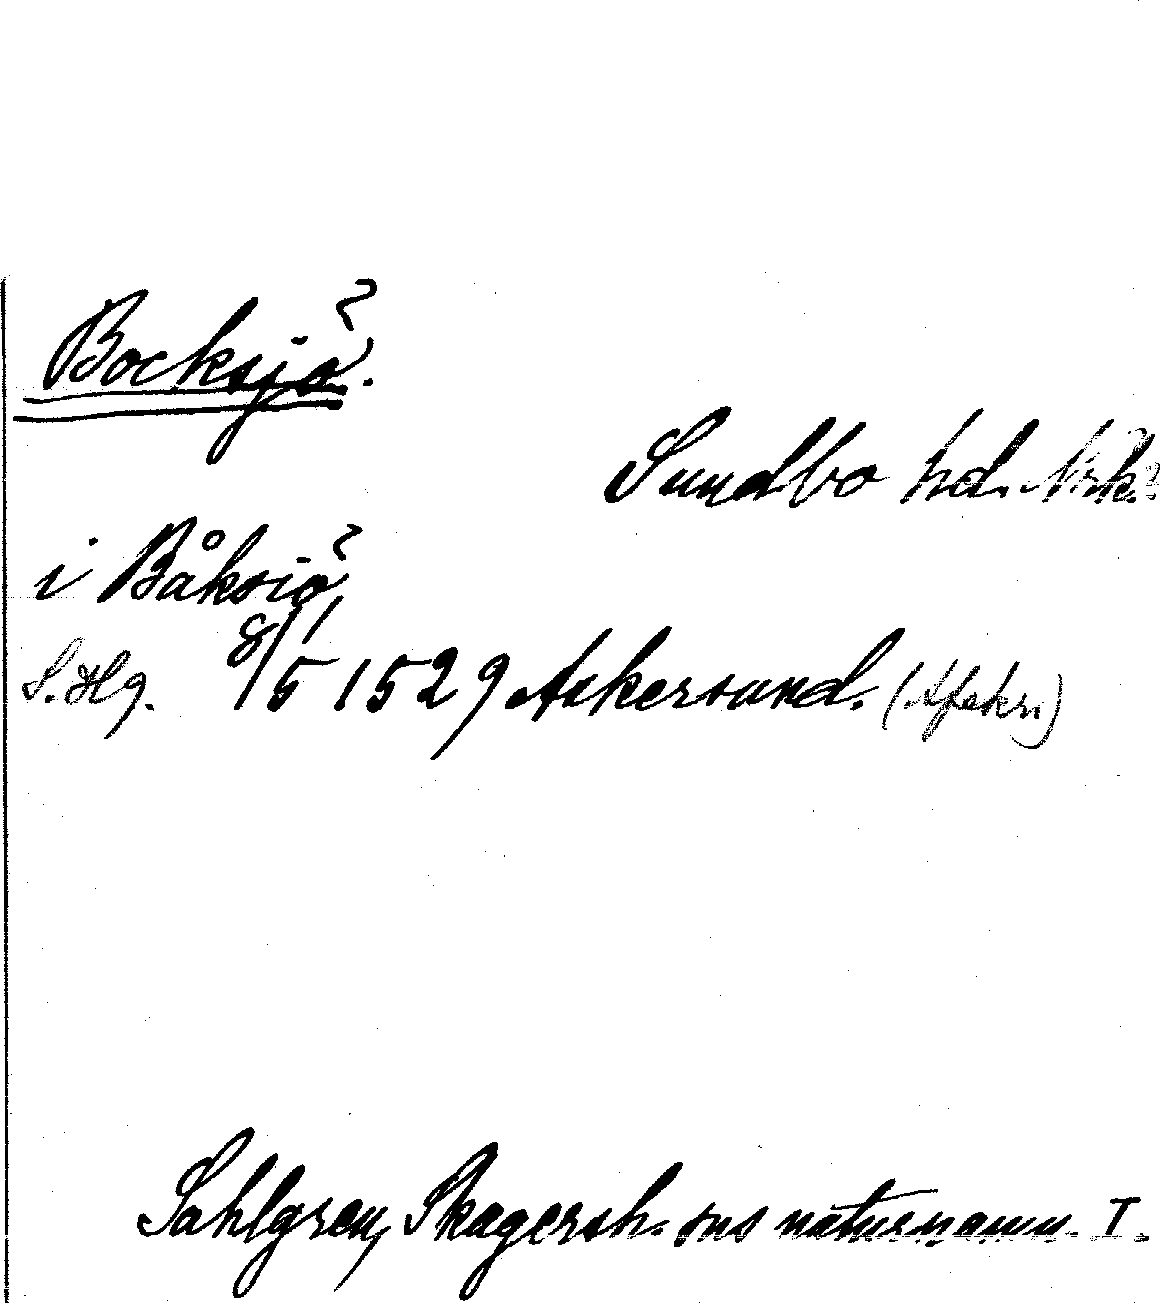 Bocksjö?.
Sundbo hd. Nrk.
i Båksiö?
S. Hg. 8/5 1529 Askersund. (Afskr.)
Sahlgren, Skagersh. sns naturnamn. I.